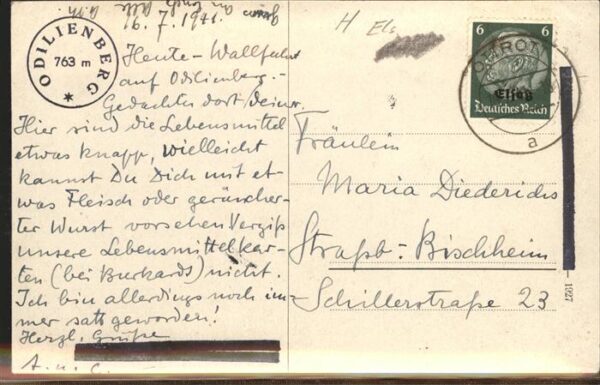 16. 7. 1941.
ODILIENBERG
763 m
Heute Wallfahrt
auf Odilienberg.-
Gedachten dort Deiner.
Hier sind die Lebensmittel
etwas knapp, vielleicht
kannst Du Dich mit et-
was Fleisch oder geräucher-
ter Wurst vorsehen Vergiß
unsere Lebensmittelkar-
ten (bei Burkards) nicht.
Ich bin allerdings noch im-
mer satt geworden!
Herzl. Grüße
H Els
6 6
Elsaß
Deutsches Reich
a
Fräulein
Maria Diederichs
Straßb.-Bischheim
Schillerstraße 23
1927